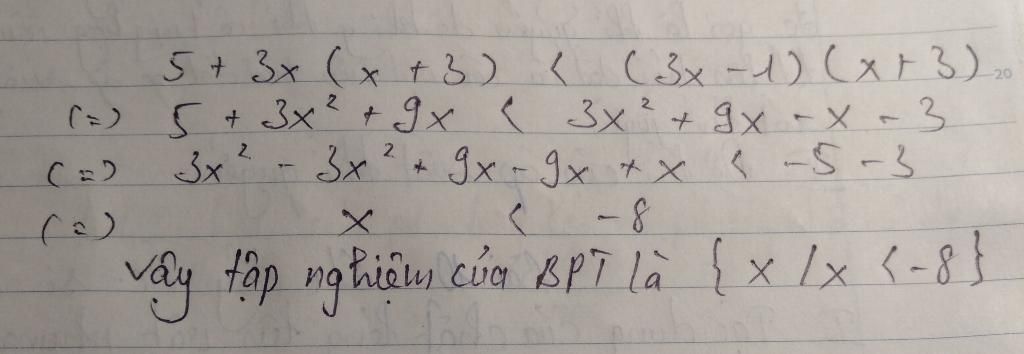 5 + 3x (x + 3) < (3x - 1) (x + 3)
(=) 5 + 3x² + 9x < 3x² + 9x - x - 3
(=) 3x² - 3x² + 9x - 9x + x < -5 - 3
(=) x < -8
Vậy tập nghiệm của BPT là { x / x < -8 }